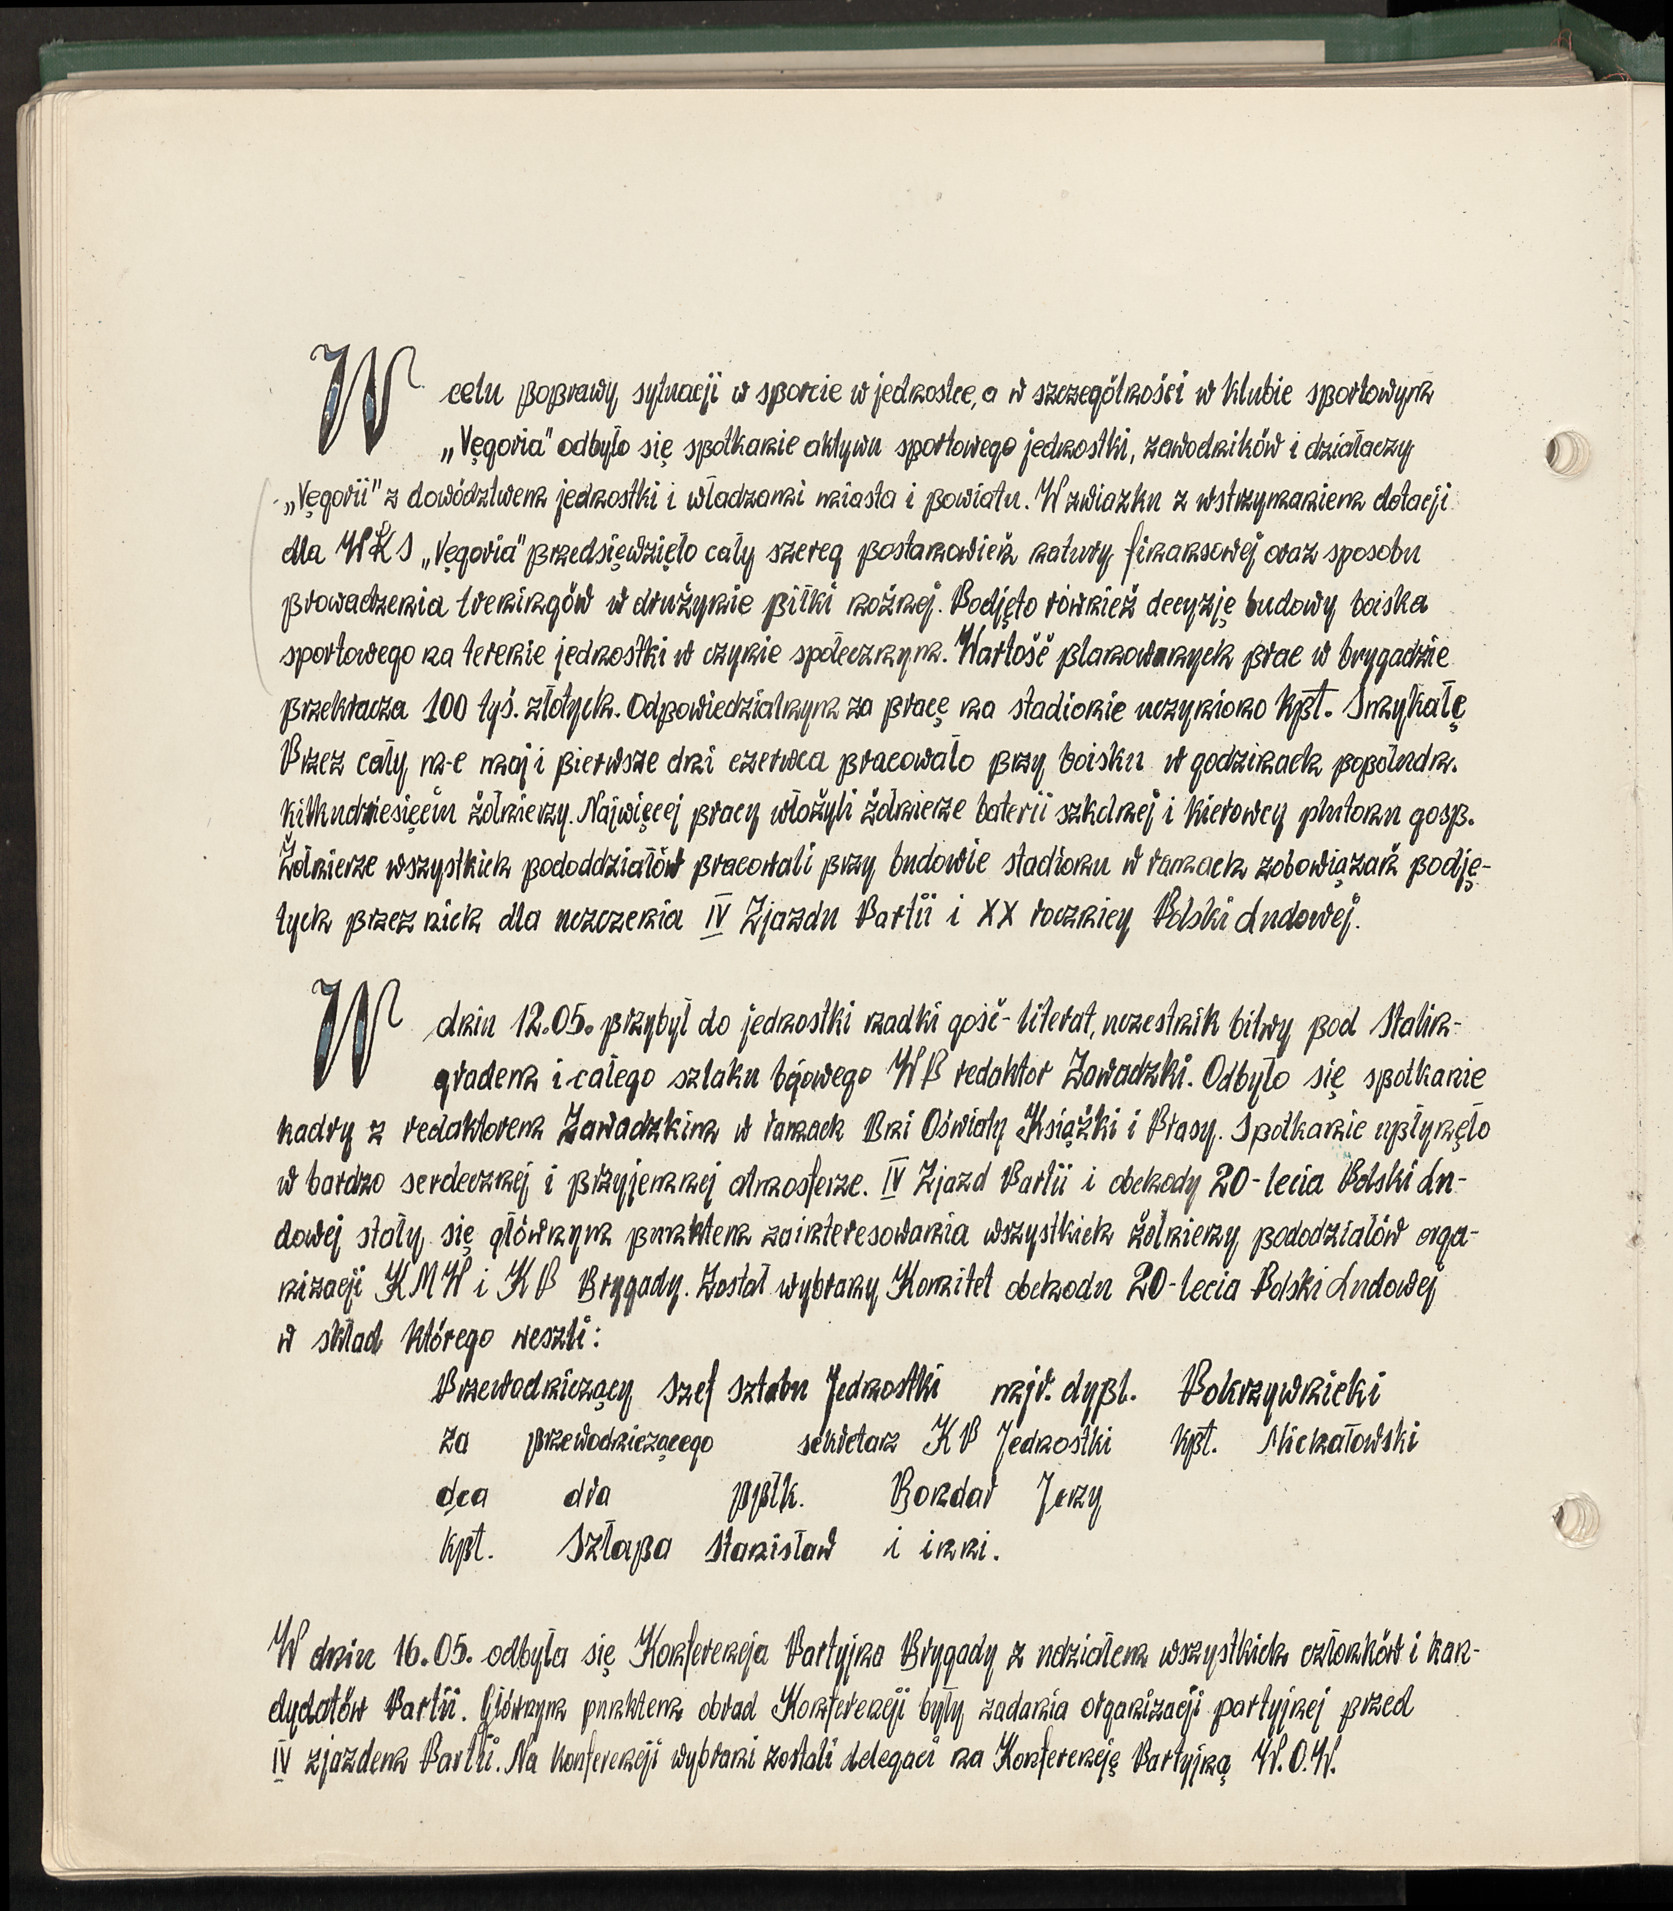 W celu poprawy sytuacji w sporcie w jednostce, a w szczególności w klubie sportowym
„Vęgoria" odbyło się spotkanie aktywu sportowego jednostki, zawodników i działaczy
„Vęgorii" z dowództwem jednostki i władzami miasta i powiatu. W zwiazku z wstrzymaniem dotacji
dla WKS „Vęgoria" przedsięwzięto cały szereg postanowień natury finansowej oraz sposobu
prowadzenia treningów w drużynie piłki nożnej. Podjęto również decyzję budowy boiska
sportowego na terenie jednostki w czynie społecznym. Wartość planowanych prac w brygadzie
przekracza 100 tyś. złotych. Odpowiedzialnym za pracę na stadionie uczyniono kpt. Smykałę
Przez cały m-c maj i pierwsze dni czerwca pracowało przy boisku w godzinach popołudn.
kilkudziesięciu żołnierzy. Najwięcej pracy włożyli żołnierze baterii szkolnej i kierowcy plutonu gosp.
Żołnierze wszystkich pododdziałów pracowali przy budowie stadionu w ramach zobowiązań podję-
tych przez nich dla uczczenia IV Zjazdu Partii i XX rocznicy Polski Ludowej.
W dniu 12.05. przybył do jednostki rzadki gość - literat, uczestnik bitwy pod Stalin-
gradem i całego szlaku bojowego WP redaktor Zawadzki. Odbyło się spotkanie
kadry z redaktorem Zawadzkim w ramach Dni Oświaty Książki i Prasy. Spotkanie upłynęło
w bardzo serdecznej i przyjemnej atmosferze. IV Zjazd Partii i obchody 20-lecia Polski Lu-
dowej stały się głównym punktem zainteresowania wszystkich żołnierzy pododziałów orga-
nizacji KMW i KP Brygady. Został wybrany Komitet obchodu 20-lecia Polski Ludowej
w skład którego weszli:
Przewodniczący Szef Sztabu Jednostki mjr. dypl. Pokrzywnicki
za przewodniczącego sekretarz KP Jednostki kpt. Michałowski
dca dra ppłk. Bondar Jerzy
kpt. Szłapa Stanisław i inni.
W dniu 16.05. odbyła się Konferencja Partyjna Brygady z udziałem wszystkich członków i kan-
dydatów Partii. Głównym punktem obrad Konferencji były zadania organizacji partyjnej przed
IV zjazdem Partii. Na konferencji wybrani zostali delegaci na Konferencję Partyjną W.O.W.